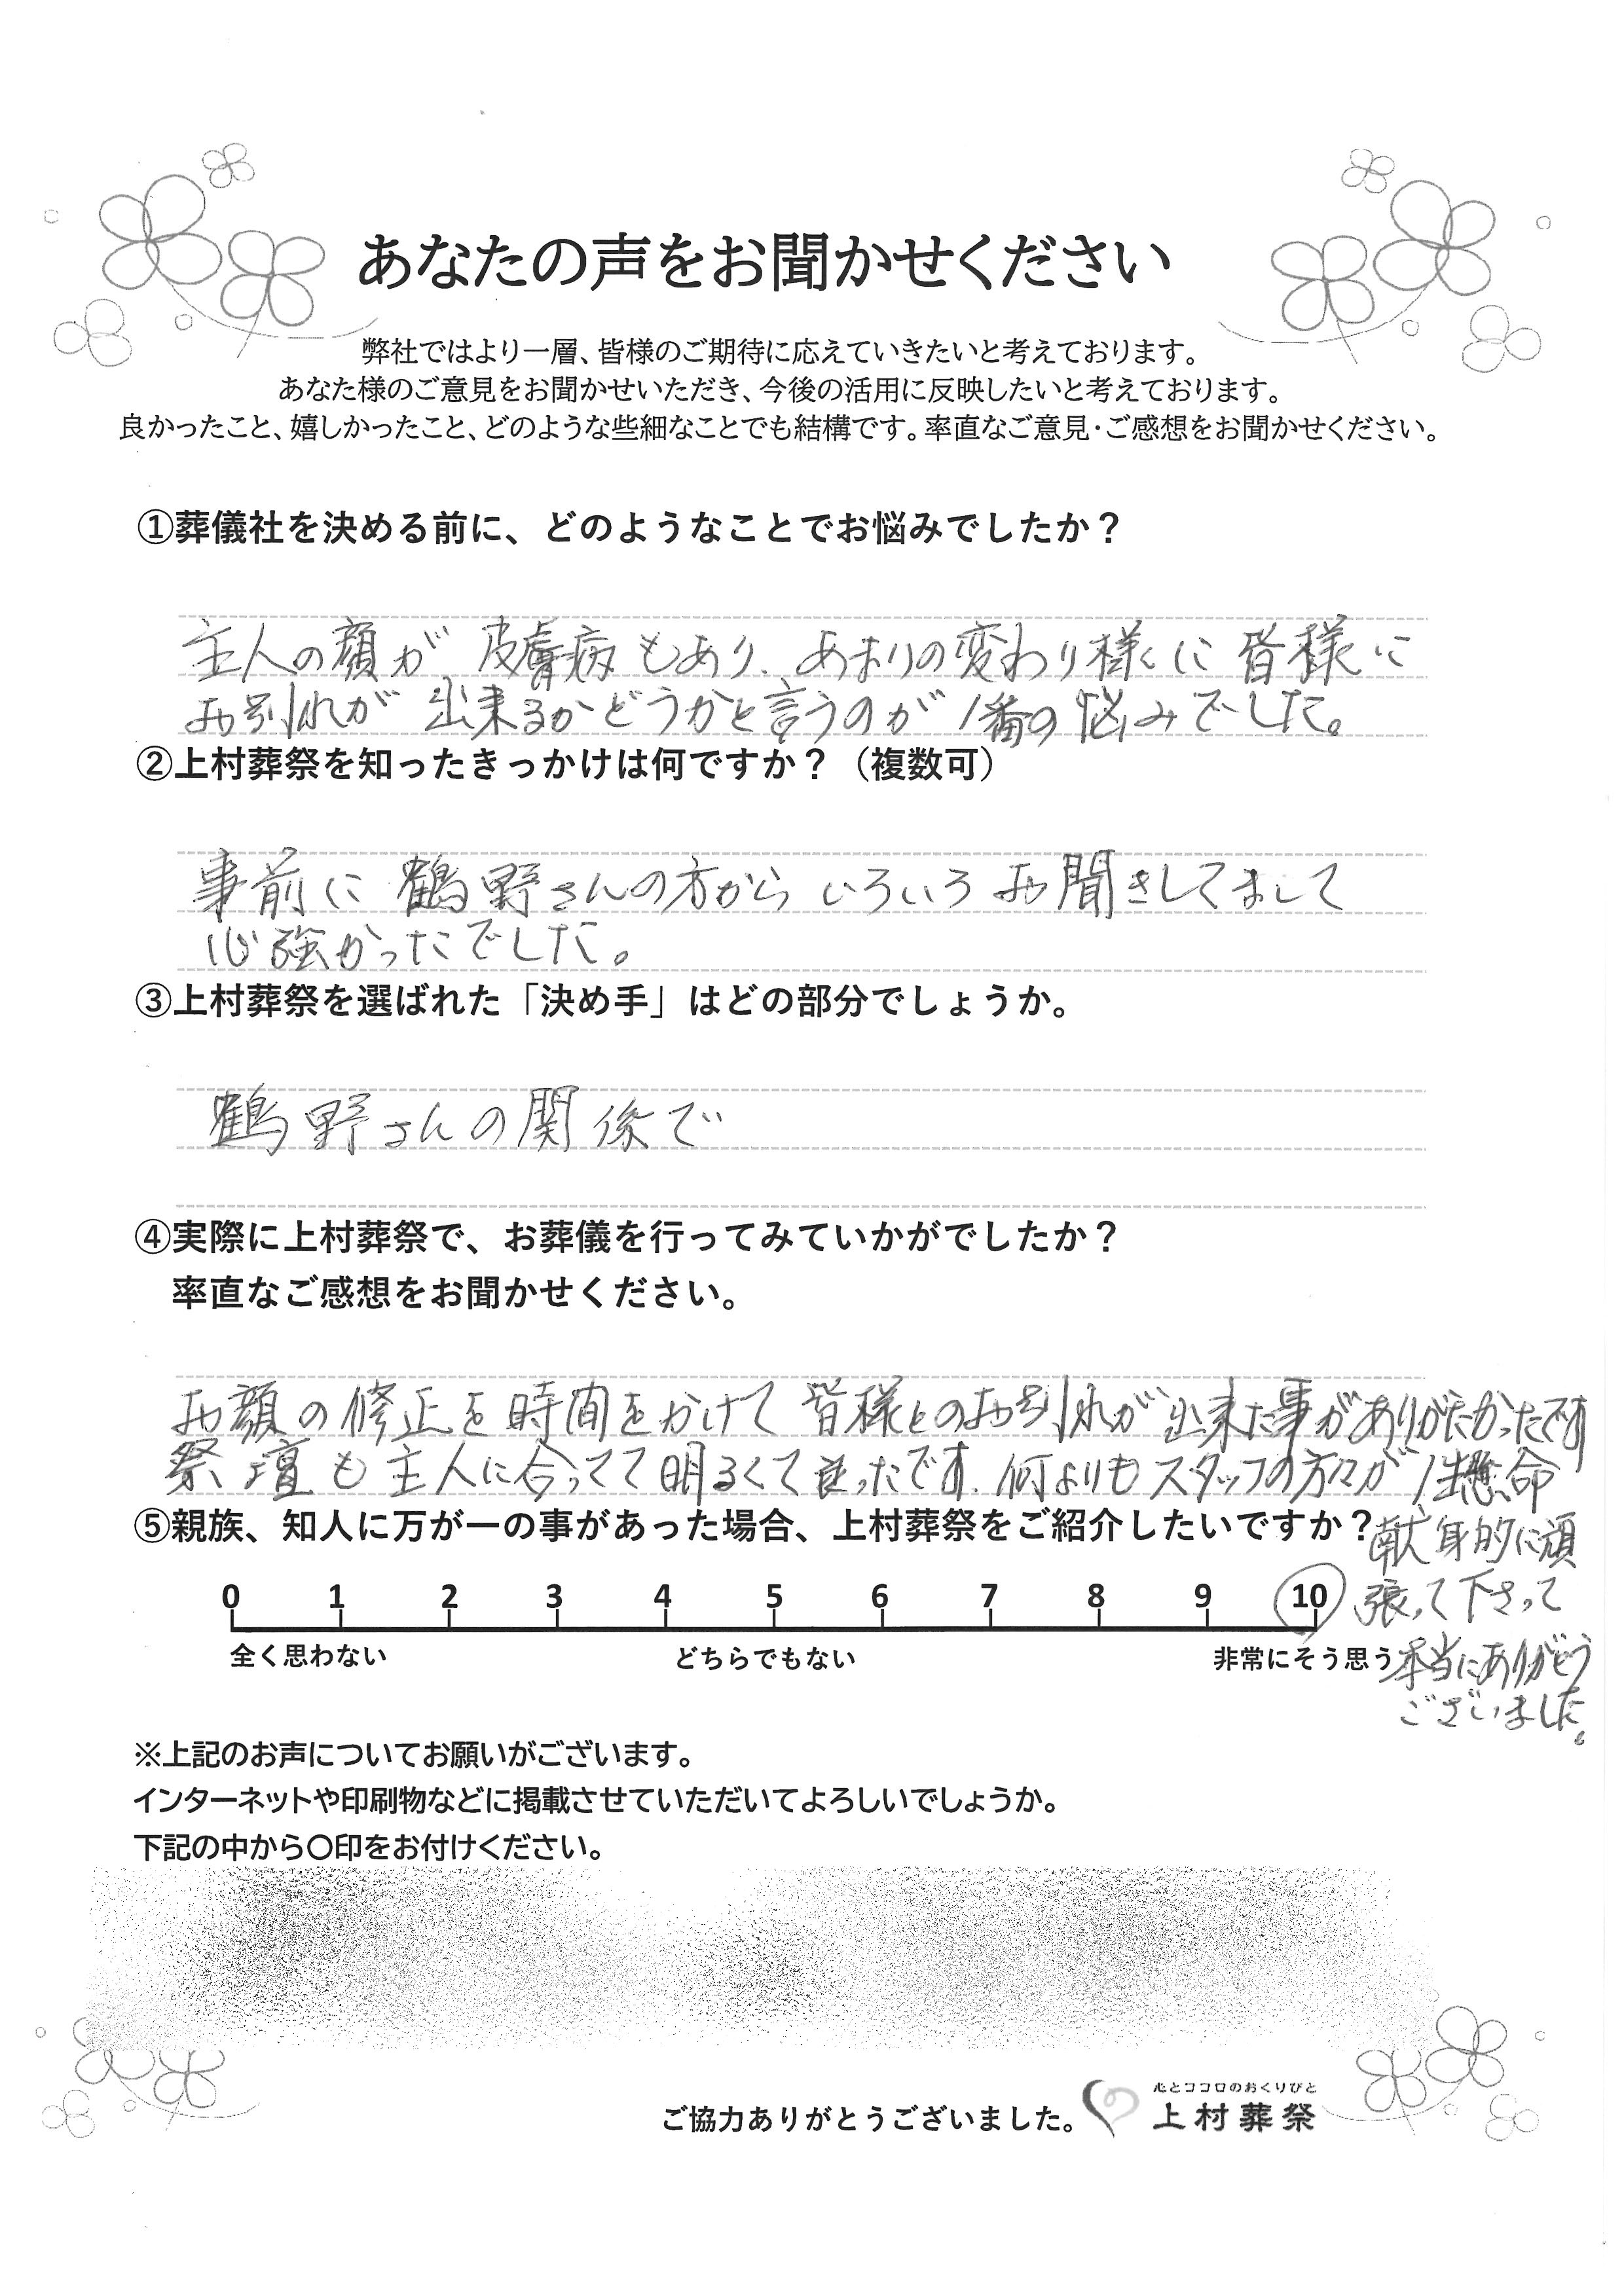 あなたの声をお聞かせください
弊社ではより一層、皆様のご期待に応えていきたいと考えております。
あなた様のご意見をお聞かせいただき、今後の活用に反映したいと考えております。
良かったこと、嬉しかったこと、どのような些細なことでも結構です。率直なご意見・ご感想をお聞かせください。
①葬儀社を決める前に、どのようなことでお悩みでしたか？
主人の顔が皮膚病もあり、あまりの変わり様に皆様に
お別れが出来るかどうかと言うのが1番の悩みでした。
②上村葬祭を知ったきっかけは何ですか？（複数可）
事前に鶴野さんの方からいろいろお聞きしてまして
心強かったでした。
③上村葬祭を選ばれた「決め手」はどの部分でしょうか。
鶴野さんの関係で
④実際に上村葬祭で、お葬儀を行ってみていかがでしたか？
率直なご感想をお聞かせください。
お顔の修正を時間をかけて皆様とのお別れが出来た事がありがたかったです
祭壇も主人に合ってて明るくて良ったです。何よりもスタッフの方々が1生懸命
献身的に頑
張って下さって
本当にありがとう
ございました。
⑤親族、知人に万が一の事があった場合、上村葬祭をご紹介したいですか？
0 1 2 3 4 5 6 7 8 9 10
全く思わない どちらでもない 非常にそう思う
※上記のお声についてお願いがございます。
インターネットや印刷物などに掲載させていただいてよろしいでしょうか。
下記の中から〇印をお付けください。
ご協力ありがとうございました。
心とココロのおくりびと
上村葬祭